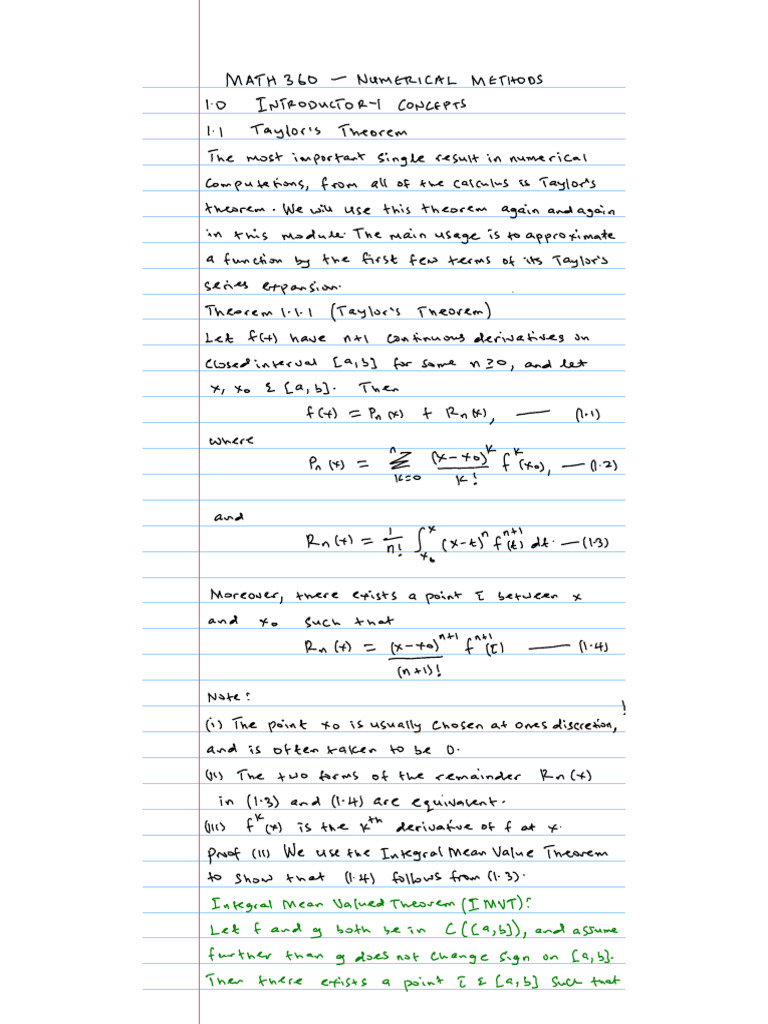 MATH 360 — NUMERICAL METHODS
1.0 INTRODUCTORY CONCEPTS
1.1 Taylor's Theorem
The most important single result in numerical
computations, from all of the calculus is Taylor's
theorem. We will use this theorem again and again
in this module. The main usage is to approximate
a function by the first few terms of its Taylor's
series expansion.
Theorem 1.1.1 (Taylor's Theorem)
Let f(x) have n+1 continuous derivatives on
closed interval [a,b] for some n≥0, and let
x, x₀ ε [a,b]. Then
f(x) = Pₙ(x) + Rₙ(x), — (1.1)
where
Pₙ(x) = Σ_{k=0}^{n} (x-x₀)^k / k! f^k(x₀), — (1.2)
and
Rₙ(x) = 1/n! ∫_{x₀}^{x} (x-t)^n f^{n+1}(t) dt. — (1.3)
Moreover, there exists a point ξ between x
and x₀ such that
Rₙ(x) = (x-x₀)^{n+1} / (n+1)! f^{n+1}(ξ) — (1.4)
Note:
!
(i) The point x₀ is usually chosen at ones discretion,
and is often taken to be 0.
(ii) The two forms of the remainder Rₙ(x)
in (1.3) and (1.4) are equivalent.
(iii) f^k(x) is the k^th derivative of f at x.
Proof (ii) We use the Integral Mean Value Theorem
to show that (1.4) follows from (1.3).
Integral Mean Valued Theorem (IMVT):
Let f and g both be in C([a,b]), and assume
further than g does not change sign on [a,b].
Then there exists a point ξ ε [a,b] such that